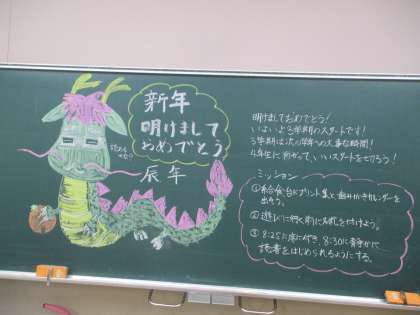 新年
明けまして
おめでとう
辰年
明けましておめでとう!
いよいよ3学期のスタートです!
3学期は次の学年への大事な時間!
4年生に向かって、いいスタートをきろう!
ミッション
①給食台にプリント集と歯みがきカレンダーを
出そう。
②遊びに行く前に名札を付けよう。
③8:25に席に付き、8:30に静かに
読書をはじめられるようにする。